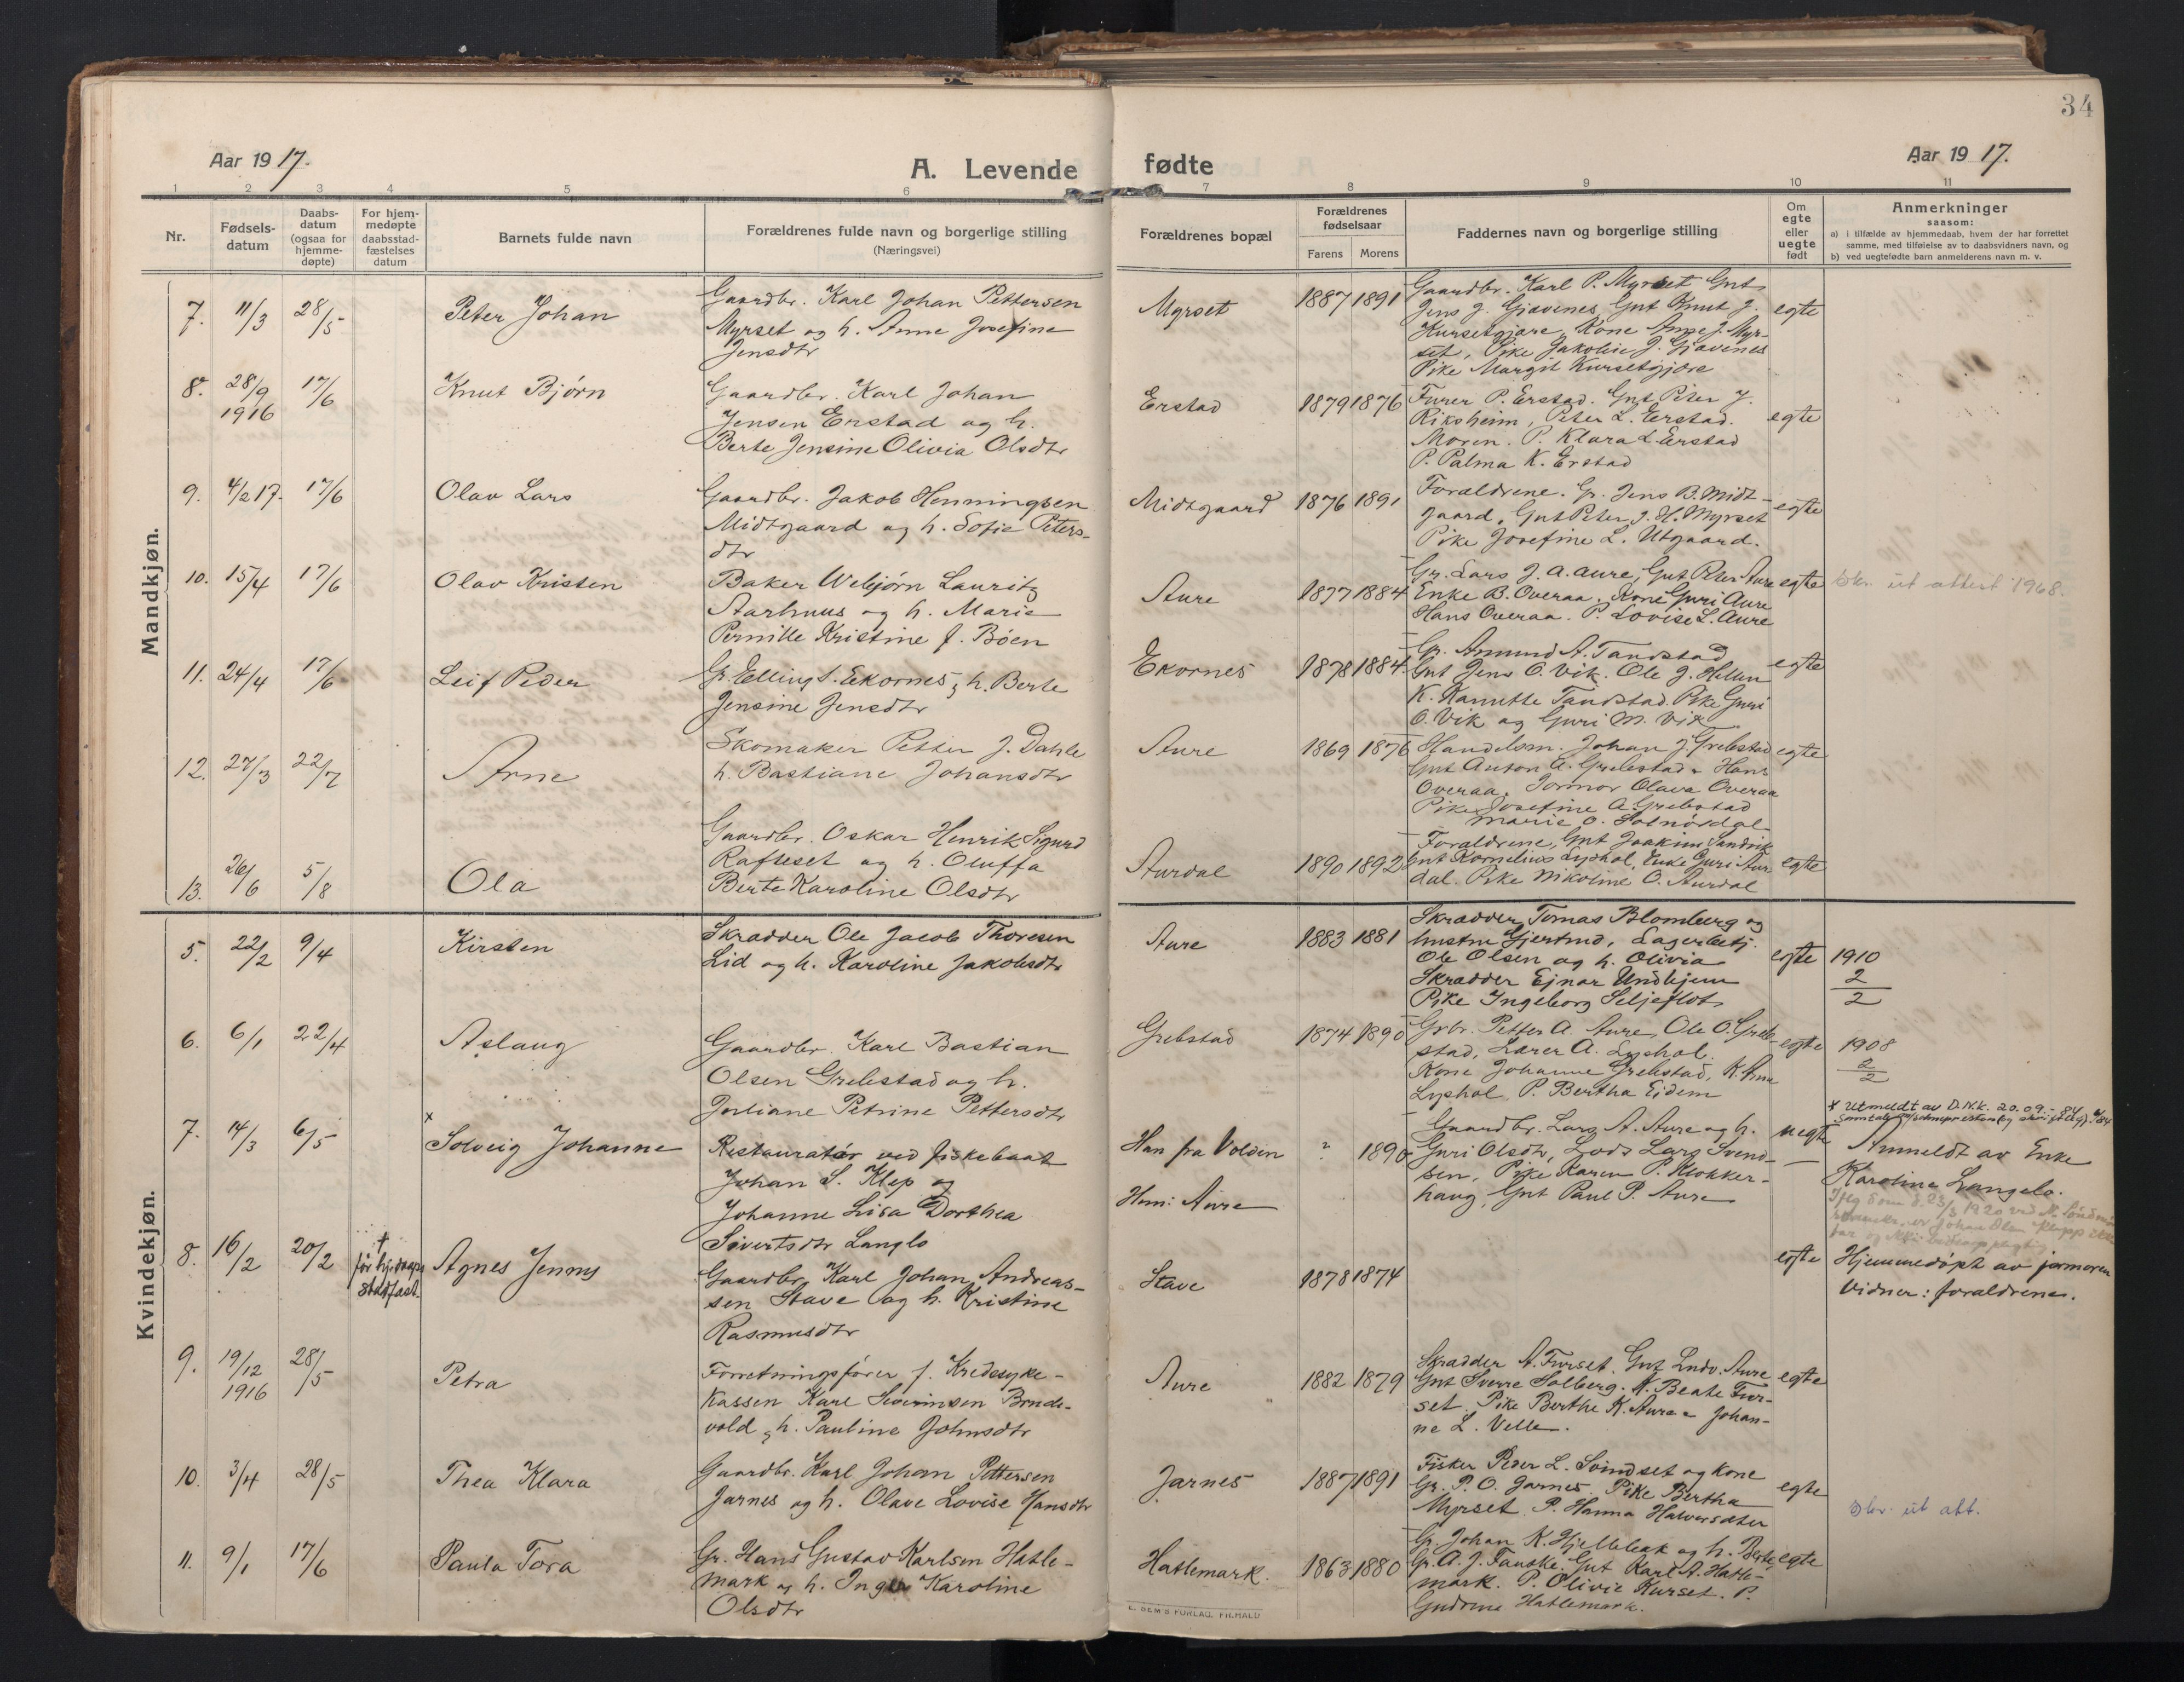 34
Aar 1917.
A. Levende fødte
Aar 1917.
1 2 3 4 5 6 7 8 9 10 11
Nr.
Fødsels-
datum
Daabs-
datum
(ogsaa for
hjemme-
døpte)
For hjem-
medøpte
daabsstad-
fæstelses
datum
Barnets fulde navn
Forældrenes fulde navn og borgerlige stilling
(Næringsvei)
Forældrenes bopæl
Forældrenes
fødselsaar
Farens Morens
Faddernes navn og borgerlige stilling
Om
egte
eller
uegte
født
Anmerkninger
saasom:
a) i tilfælde av hjemmedaab, hvem der har forrettet
samme, med tilføielse av to daabsvidners navn, og
b) ved uegtefødte barn anmelderens navn m. v.
Mandkjøn.
7. 11/3 28/5 Peter Johan
Gaardbr. Karl Johan Pettersen
Myrset og h. Anne Josefine
Jensdtr
Myrset 1887 1891
Gaardbr. Karl P. Myrset Gut
Jens J. Gjævenes, Gut Knut J.
Kursetgjære, Kone Anne J. Myr-
set, Pike Jakobie J. Gjævenes
Pike Margit Kursetgjære
egte
8. 28/9 1916 17/6 Knut Bjørn
Gaardbr. Karl Johan
Jensen Erstad og h.
Berte Jensine Olivia Olsdtr
Erstad 1879 1876
Furer P. Erstad. Gut Peter J.
Riksheim, Peter L. Erstad.
Moren. P. Klara L. Erstad
P. Palma K. Erstad
egte
9. 4/2 17. 17/6 Olav Lars
Gaardbr. Jakob Henningsen
Midtgaard og h. Sofie Peters-
dtr
Midtgaard 1876 1891
Forældrene. Gr. Jens B. Midt-
gaard, Gut Peter J. H. Myrset
Pike Josefine L. Utgaard.
egte
10. 15/4 17/6 Olav Kristen
Baker Webjørn Lauritz
Aarhuus og h. Marie
Pernille Kristine f. Bøen
Aure 1877 1884
Gr. Lars J. A. Aure, Gut Peter Aure
Enke B. Overaa. Kone Guri Aure
Hans Overaa. P. Lovise L. Aure
egte
Skr. ut attest 1968.
11. 24/4 17/6 Leif Peder
Gr. Elling S. Ekornes, h. Berte
Jensine Jensdtr
Ekornes 1878 1884.
Gr. Amund A. Tandstad
Gut Jens O. Vik. Ole J. Hellen
K. Kanutte Tandstad. Pike Guri
O. Vik og Guri M. Vik
egte
12. 27/3 22/7 Arne
Skomaker Petter J. Dahle
h. Bastiane Johansdtr
Aure 1869 1876
Handelsm. Johan J. Grebstad
Gut Anton A. Grebstad. Hans
Overaa. Jormor Olava Overaa
Pike Josefine A. Grebstad
Marie O. Solnørdal
egte
13. 26/6 5/8 Ola
Gaardbr. Oskar Henrik Sigurd
Rafteset og h. Oluffa
Berte Karoline Olsdtr
Aurdal 1890 1892
Forældrene, Gut Joakim Sandvik
Gut Kornelius Lyshol, Enke Guri Aur
dal. Pike Nikoline O. Aurdal
egte
Kvindekjøn.
5. 22/2 9/4 Kirsten
Skrædder Ole Jacob Thoresen
Lid og h. Karoline Jakobsdtr
Aure 1883 1881
Skrædder Tomas Blomberg og
hustru Gjertrud, Lagerbetj.
Ole Olsen og h. Olivia
Skrædder Ejnar Undhjem
Pike Ingeborg Seljeflot
egte
1910
2
2
6. 6/1 22/4 Aslaug
Gaardbr. Karl Bastian
Olsen Grebstad og h.
Juliane Petrine Pettersdtr
Grebstad 1874 1890
Grbr. Petter A. Aure, Ole O. Greb-
stad, Lærer A. Lyshol.
Kone Johanne Grebstad, K. Anna
Lyshol, P. Bertha Eidem
egte
1908
2
2
7. 14/3 6/5 x Solveig Johanne
Restauratør ved fiskebaat
Johan S. Klep og
Johanne Lisa Dorthea
Sivertsdtr Langlo
Han fra Volden ? 1890
Hun: Aure
Gaardbr. Lars A. Aure og h.
Guri Olsdtr, Lods Lars Svend-
sen, Pike Karen P. Klokker-
haug, Gut Paul P. Aure
uegte
x Utmeldt av D.N.K. 20.09.-84
Anmeldt av Enke
Karoline Langelo.
8. 16/2 20/2 † før hj.daaps stadfæst. Agnes Jenny
Gaardbr. Karl Johan Andreas-
sen Stave og h. Kristine
Rasmusdtr
Stave 1878 1874
egte
Hjemmedøpt av jormoren
Vidner: forældrene.
9. 19/12 1916 28/5 Petra
Forretningsfører f. Kredssyke-
kassen Karl Severinsen Brude-
vold, h. Pauline Johnsdtr
Aure 1882 1879
Skrædder A. Furset. Gut Ludv. Aure
Gut Sverre Solberg. K. Beate Fur-
set. Pike Berthe K. Aure - Johan-
ne L. Velle.
egte
10. 3/4 28/5 Thea Klara
Gaardbr. Karl Johan Pettersen
Jarnes og h. Olave Lovise Hansdtr
Jarnes 1887 1891
Fisker Peder L. Svindset og kone
Gr. P. O. Jarnes. Pike Bertha
Myrset. P. Hanna Halvorsdtter
egte
Skr. ut att.
11. 9/1 17/6 Paula Tora
Gr. Hans Gustav Karlsen Hatle-
mark og h. Inger Karoline
Olsdtr
Hatlemark. 1863 1880
Gr. Johan K. Hjelleeak og h. Berte,
Gr. A. J. Fauske. Gut Karl A. Hatle-
mark. P. Olivie Kurset. P.
Gudrun Hatlemark.
egte
E. SEM'S FORLAG, FR.HALD